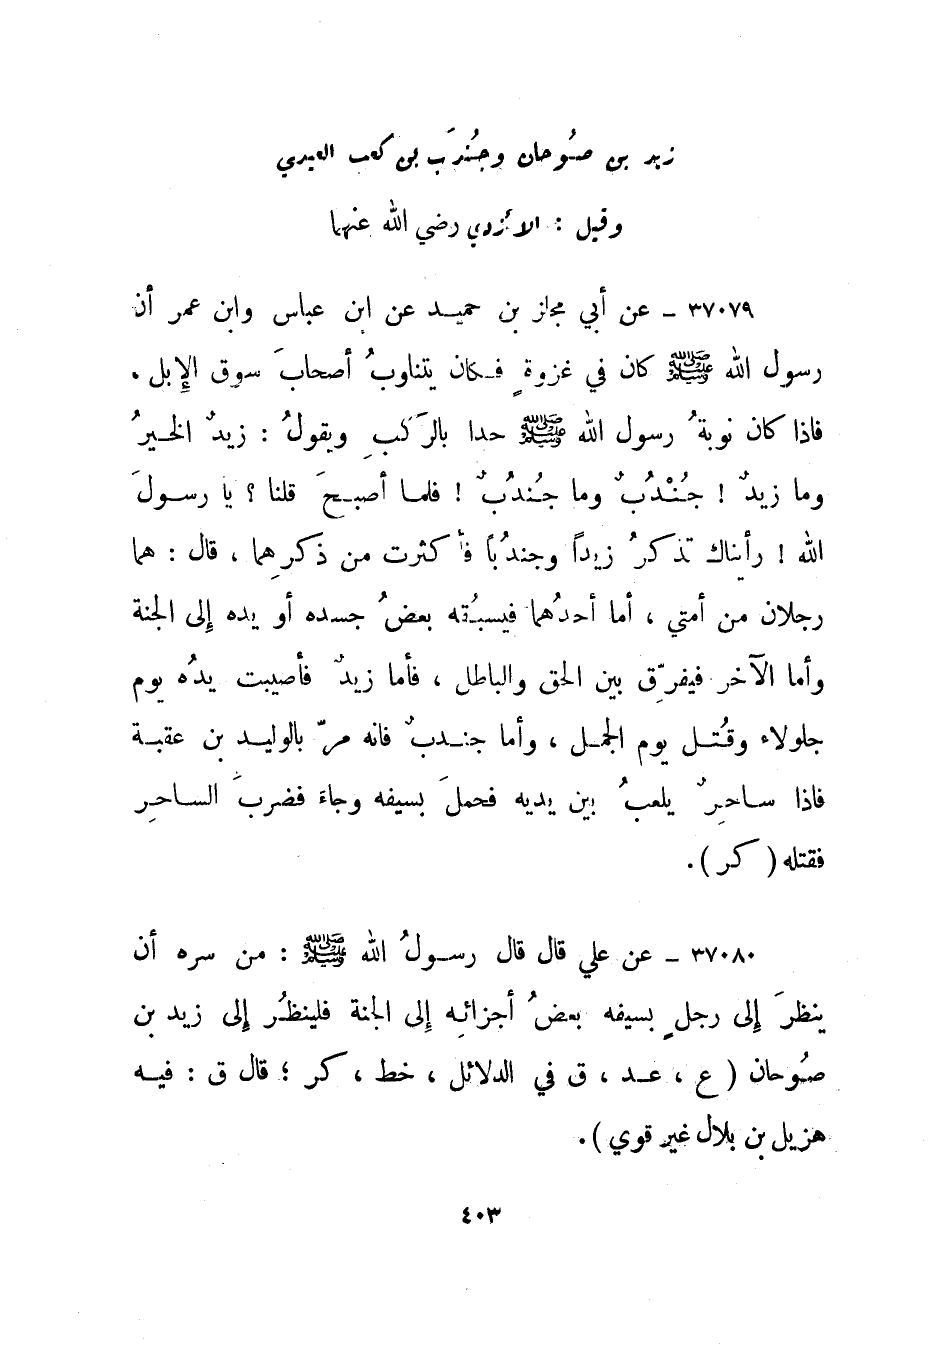 زيد بن صُوحان وجُندَب بن كعب العبدي
وقيل : الأزدي رضي الله عنهما
٣٧٠٧٩ ـ عن أبي مجلز بن حميـد عن ابن عباس وابن عمر أن
رسول الله ﷺ كان في غزوةٍ فـكان يتناوبُ أصحابَ سوق الإبل .
فاذا كان نوبةُ رسول الله ﷺ حدا بالرَكبِ ويقولُ : زيدٌ الخـيرُ
وما زيدٌ ! جُنْدُبٌ وما جُندُبٌ ! فلمـا أصبـحَ قلنا ؟ يا رسـولَ
الله ! رأيناك تذكرُ زيداً وجندُباً فأكثرت من ذكرِهما ، قال : هما
رجلان مـن أمتي ، أما أحدُهما فيسبُقه بعضُ جسده أو يده إلى الجنة
وأما الآخر فيفرّق بين الحق والباطل ، فأما زيدٌ فأصيبت يدُه يوم
جلولاء وقُتـل يوم الجمـل ، وأما جنـدبٌ فانه مرّ بالوليـد بن عقبـة
فاذا سـاحرٌ يلعبُ بين يديه فحملَ بسيفه وجاءَ فضربَ السـاحرِ
فقتله ( كر ) .
٣٧٠٨٠ ـ عن علي قال قال رسـولُ الله ﷺ : مـن سره أن
ينظرَ إلى رجلٍ بسيفه بعضُ أجزائِه إلى الجنة فلينظُر إلى زيد بن
صُوحان ( ع ، عـد ، ق في الدلائل ، خط ، كر ؛ قال ق : فيـه
هزيل بن بلال غير قوي ) .
٤٠٣